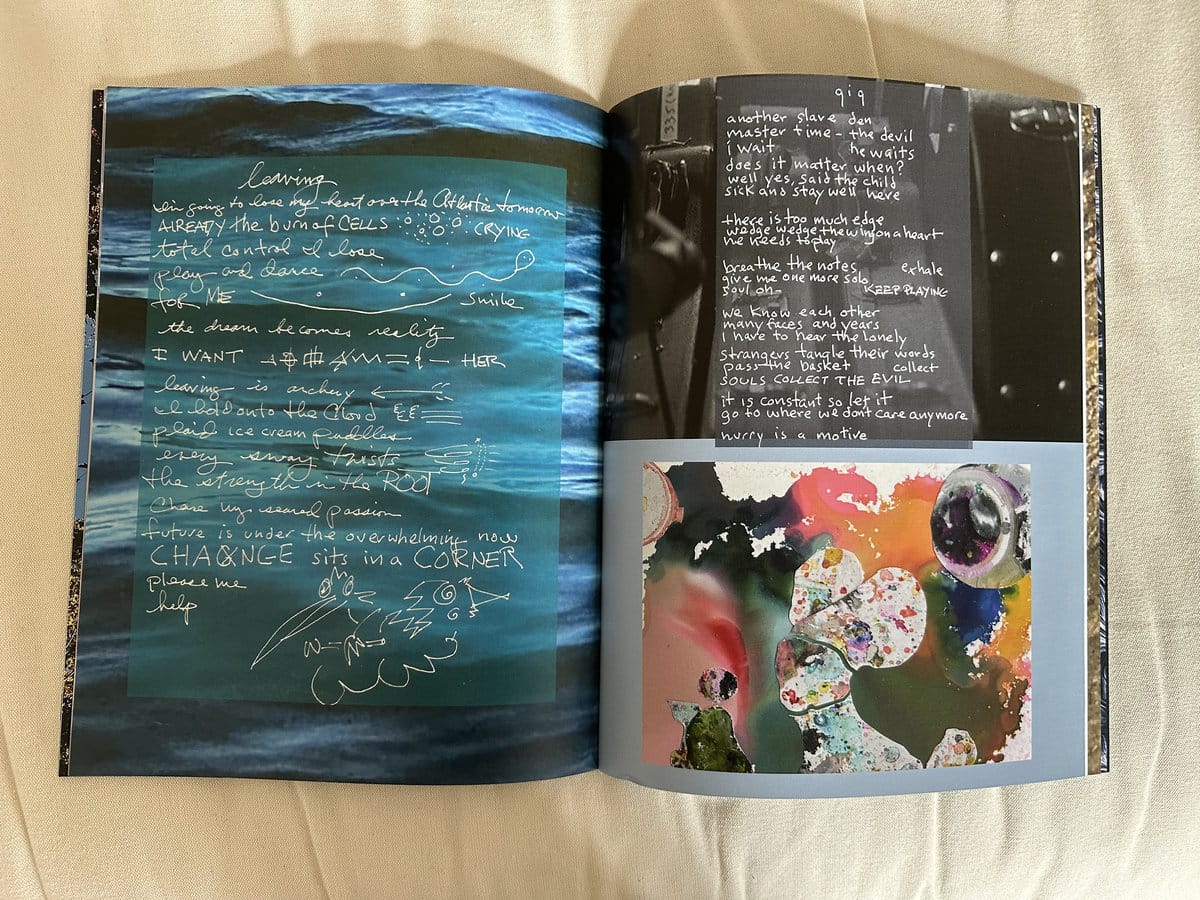 leaving
I'm going to lose my heart over the Atlantic tomorrow
AlREADY the burn of CELLS CRYING
total control I lose
play and dance
for ME Smile
the dream becomes reality
I WANT HER
leaving is archery
I hold onto the Cloud
plaid ice cream puddles
every sway twists
the strength in the ROOT
Chase my seared passion
future is under the overwhelming now
CHAXNGE sits in a CORNER
please me
help
gig
another slave den
master time - the devil
i wait he waits
does it matter when?
well yes, said the child
sick and stay well here
there is too much edge
wedge wedge the wing on a heart
he needs to play
breathe the notes exhale
give me one more solo
soul on - KEEP PLAYING
we know each other
many faces and years
I have to hear the lonely
strangers tangle their words
pass the basket collect
SOULS COLLECT THE EVIL
it is constant so let it
go to where we dont care anymore
hurry is a motive